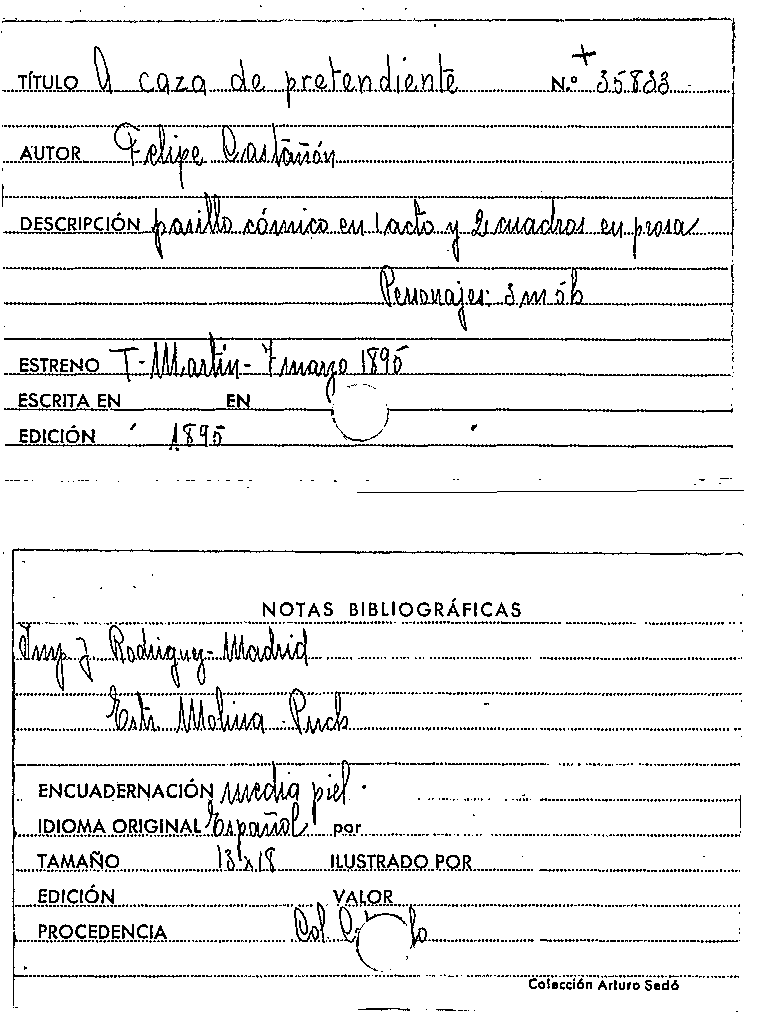 TÍTULO A caza de pretendiente N.º 35833
+
AUTOR Felipe Castañón
DESCRIPCIÓN pasillo cómico en 1 acto y 2 cuadros en prosa
Personajes: 3 m 5 h
ESTRENO T- Martín- 7 marzo 1895
ESCRITA EN EN
EDICIÓN 1895
NOTAS BIBLIOGRÁFICAS
Imp J. Rodriguez- Madrid
Estr. Molina
ENCUADERNACIÓN media piel.
IDIOMA ORIGINAL Español por
TAMAÑO 13 x 18 ILUSTRADO POR
EDICIÓN VALOR
PROCEDENCIA Col
Colección Arturo Sedó